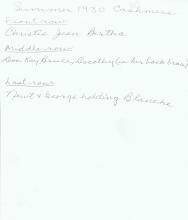 Summer 1930 Cashmere
Front row
Christie Jean Bertha
Middle row
Don Kay Bruce, Dorothy (in her back brace)
Last row
Newt & George holding Blanche